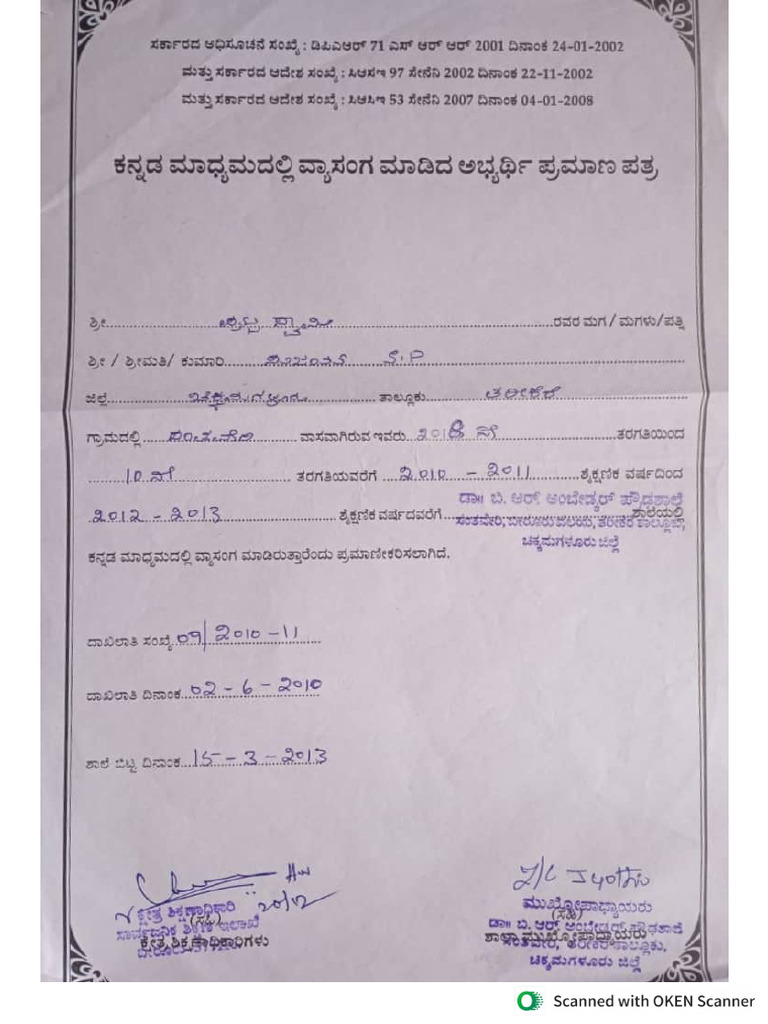 ಸರ್ಕಾರದ ಅಧಿಸೂಚನೆ ಸಂಖ್ಯೆ : ಡಿಪಿಎಆರ್ 71 ಎಸ್ ಆರ್ ಆರ್ 2001 ದಿನಾಂಕ 24-01-2002
ಮತ್ತು ಸರ್ಕಾರದ ಆದೇಶ ಸಂಖ್ಯೆ : ಸಿಆಸಇ 97 ಸೇನೆನಿ 2002 ದಿನಾಂಕ 22-11-2002
ಮತ್ತು ಸರ್ಕಾರದ ಆದೇಶ ಸಂಖ್ಯೆ : ಸಿಆಸಿಇ 53 ಸೇನೆನಿ 2007 ದಿನಾಂಕ 04-01-2008
ಕನ್ನಡ ಮಾಧ್ಯಮದಲ್ಲಿ ವ್ಯಾಸಂಗ ಮಾಡಿದ ಅಭ್ಯರ್ಥಿ ಪ್ರಮಾಣ ಪತ್ರ
ಶ್ರೀ ಸ್ವಾಮಿ ರವರ ಮಗ/ಮಗಳು/ಪತ್ನಿ
ಶ್ರೀ / ಶ್ರೀಮತಿ/ ಕುಮಾರಿ
ಜಿಲ್ಲೆ ಚಿಕ್ಕಮಗಳೂರು ತಾಲ್ಲೂಕು ತರೀಕೆರೆ
ಗ್ರಾಮದಲ್ಲಿ ವಾಸವಾಗಿರುವ ಇವರು ತರಗತಿಯಿಂದ
10 ನೇ ತರಗತಿಯವರೆಗೆ 2010 - 2011 ಶೈಕ್ಷಣಿಕ ವರ್ಷದಿಂದ
2012 - 2013 ಶೈಕ್ಷಣಿಕ ವರ್ಷದವರೆಗೆ ಶಾಲೆಯಲ್ಲಿ
ಡಾ|| ಬಿ. ಆರ್. ಅಂಬೇಡ್ಕರ್ ಪ್ರೌಢಶಾಲೆ
ಸಂತವೇರಿ, ಬೀರೂರು ವಲಯ, ತರೀಕೆರೆ ತಾಲ್ಲೂಕು,
ಚಿಕ್ಕಮಗಳೂರು ಜಿಲ್ಲೆ
ಕನ್ನಡ ಮಾಧ್ಯಮದಲ್ಲಿ ವ್ಯಾಸಂಗ ಮಾಡಿರುತ್ತಾರೆಂದು ಪ್ರಮಾಣೀಕರಿಸಲಾಗಿದೆ.
ದಾಖಲಾತಿ ಸಂಖ್ಯೆ 09/2010-11
ದಾಖಲಾತಿ ದಿನಾಂಕ 02-6-2010
ಶಾಲೆ ಬಿಟ್ಟ ದಿನಾಂಕ 15-3-2013
ಕ್ಷೇತ್ರ ಶಿಕ್ಷಣಾಧಿಕಾರಿ
(ಸಹಿ)
ಸಾರ್ವಜನಿಕ ಶಿಕ್ಷಣ ಇಲಾಖೆ
ಕ್ಷೇತ್ರ ಶಿಕ್ಷಣಾಧಿಕಾರಿಗಳು
I/C Jyothi
ಮುಖ್ಯೋಪಾಧ್ಯಾಯರು
(ಸಹಿ)
ಡಾ|| ಬಿ. ಆರ್. ಅಂಬೇಡ್ಕರ್ ಪ್ರೌಢಶಾಲೆ
ಶಾಲಾ ಮುಖ್ಯೋಪಾಧ್ಯಾಯರು
ಸಂತವೇರಿ, ತರೀಕೆರೆ ತಾಲ್ಲೂಕು,
ಚಿಕ್ಕಮಗಳೂರು ಜಿಲ್ಲೆ
Scanned with OKEN Scanner